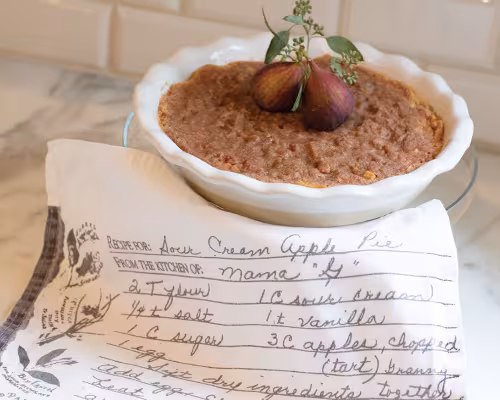 RECIPE FOR: Sour Cream Apple Pie
FROM THE KITCHEN OF: Mama "G"
2 T flour 1 C sour cream
1/4 t salt 1 t vanilla
1 C sugar 3 C apples, chopped
1 egg (tart) Granny
Sift dry ingredients together
Add eggs